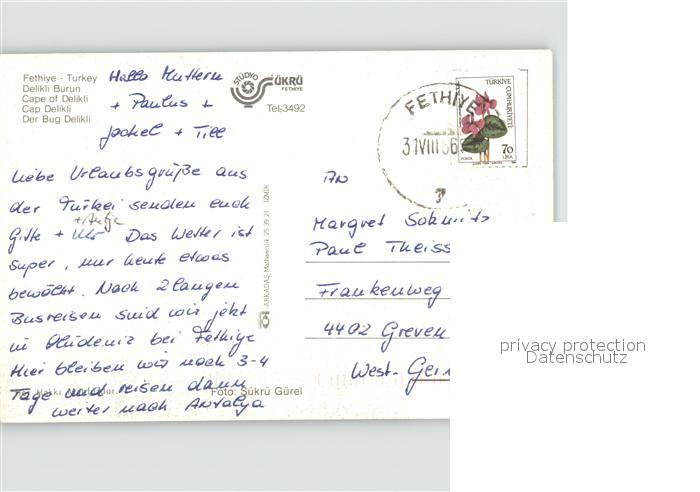 Fethiye - Turkey
Delikli Burun
Cape of Delikli
Cap Delikli
Der Bug Delikli
Hallo Muttern
+ Paulus +
Jockel + Till
STÜDYO ŞÜKRÜ
FETHİYE
Tel:3492
Liebe Urlaubsgrüße aus
der Türkei senden euch
+ Antje
Gitte + Uli Das Wetter ist
super, nur heute etwas
bewölkt. Nach 2 langen
Busreisen sind wir jetzt
in Ölüdeniz bei Fethiye
Hier bleiben wir noch 3-4
Tage und reisen dann
weiter nach Antalya
Foto: Şükrü Gürel
ARKADAŞ Matbaacılık 25 39 21 İZMİR
FETHİYE
31VIII 86
TÜRKİYE
CUMHURİYETİ
70
LİRA
POSTA
An
Margret Schmitz
Paul Theiss
Frankenweg
4402 Greven
West-Ger
privacy protection
Datenschutz